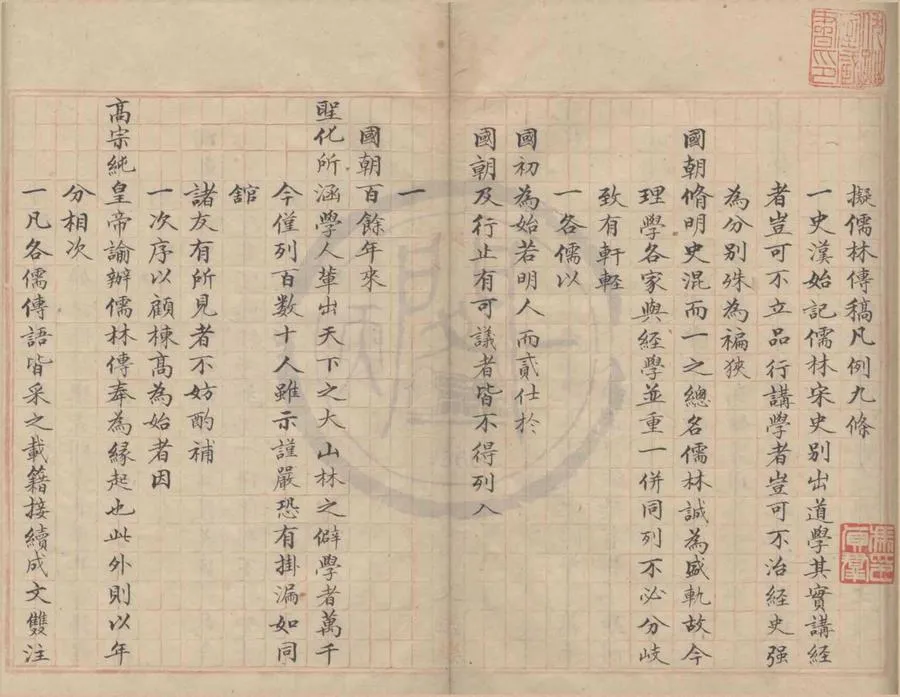 擬儒林傳稿凡例九條
一史漢始記儒林宋史別出道學其實講經
者豈可不立品行講學者豈可不治經史强
為分別殊為褊狹
國朝脩明史混而一之總名儒林誠為盛軌故今
理學各家與經學並重一併同列不必分歧
致有軒輊
一各儒以
國初為始若明人而貳仕於
國朝及行止有可議者皆不得列入
一
國朝百餘年來
聖化所涵學人輩出天下之大山林之僻學者萬千
今僅列百數十人雖示謹嚴恐有掛漏如同
館
諸友有所見者不妨酌補
一次序以顧棟高為始者因
高宗純皇帝諭辦儒林傳奉為緣起也此外則以年
分相次
一凡各儒傳語皆采之載籍接續成文雙注